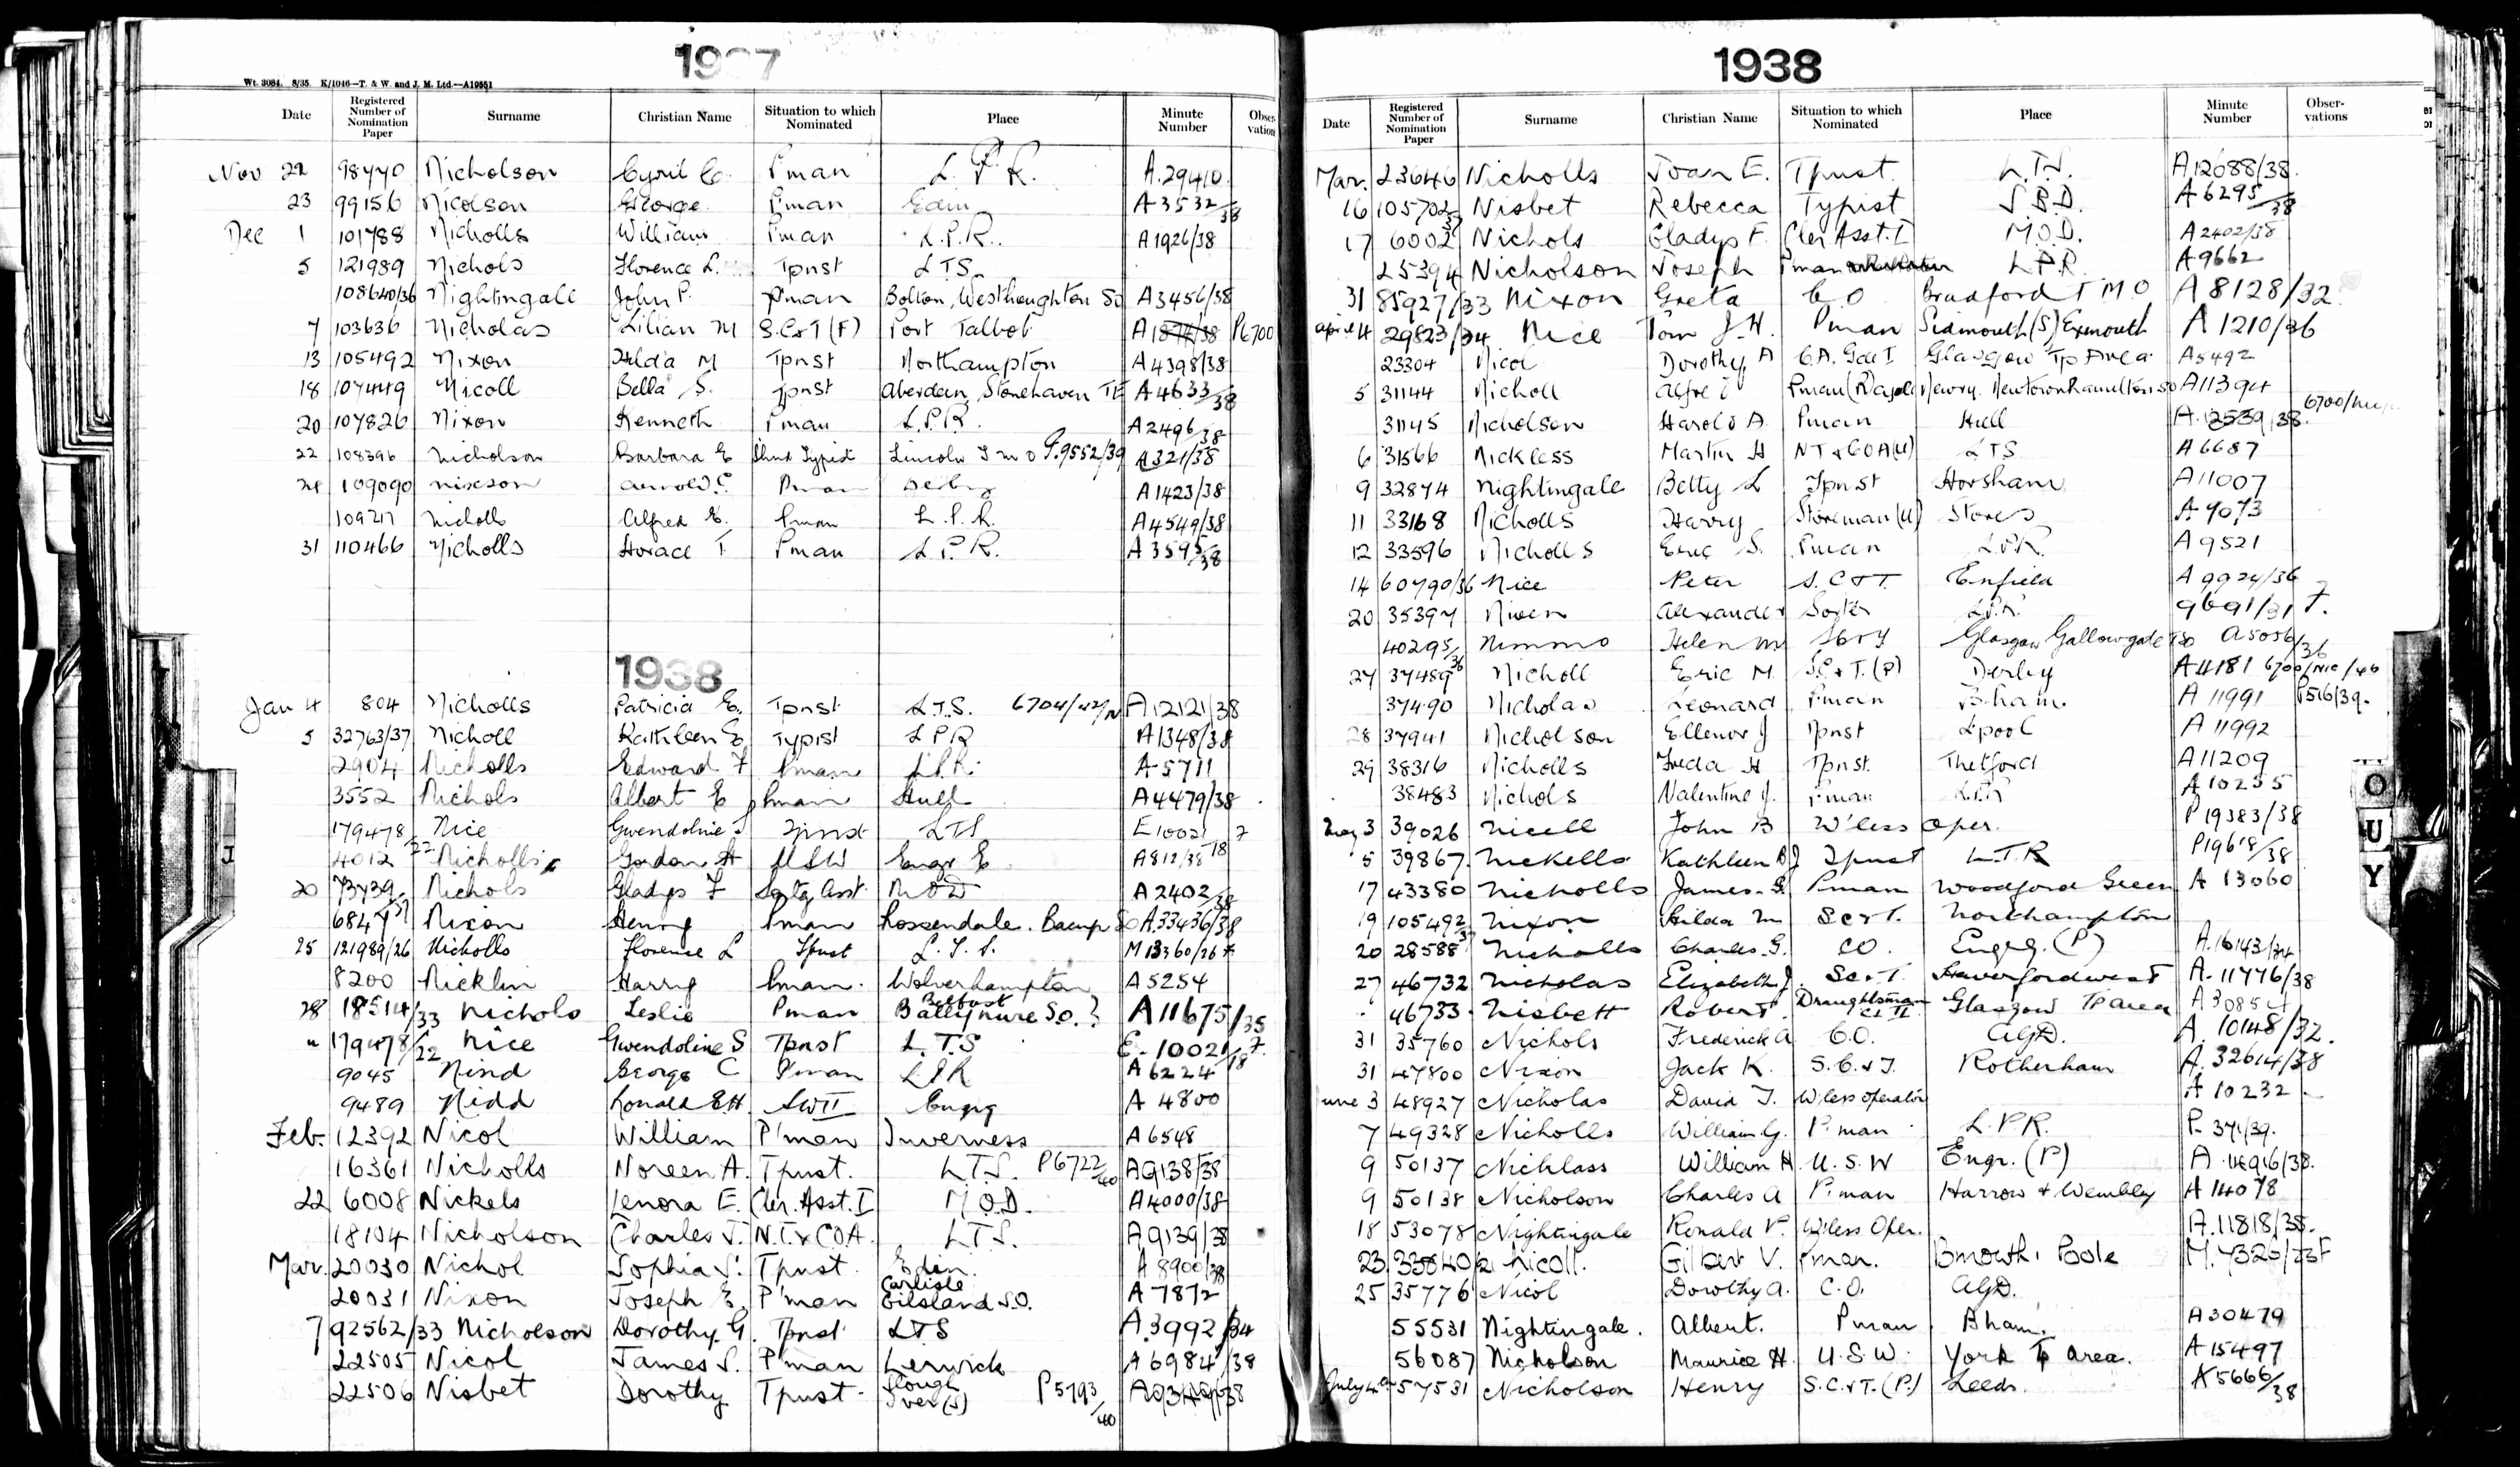 1937
Wt. 3084. 8/35. K/1046—T. & W. and J. M. Ltd.—A19551
Date Registered Number of Nomination Paper Surname Christian Name Situation to which Nominated Place Minute Number Obser- vations
Nov 22 98440 Nicholson Cyril C. Pman L.P.R. A.29410
23 99156 Nicolson George Pman Edin A 3532/38
Dec 1 101788 Nicholls William Pman L.P.R. A 1926/38
5 121989 Nichols Florence L. Tpnst LTS
108640/36 Nightingale John P. Pman Bolton, Westhoughton SO A 3456/38
7 103636 Nicholas Lilian M S.C&T (F) Port Talbot P6700
13 105492 Nixon Hilda M Tpnst Northampton A 4398/38
18 107449 Nicoll Bella S. Tpnst Aberdeen, Stonehaven TE A 4633/38
20 107826 Nixon Kenneth Pman L.P.R. A 2496/38
22 108396 Nicholson Barbara E Shnd Typist Lincoln T M O P.9552/39 A 321/38
24 109090 Nixson Arnold C. Pman Derby A 1423/38
109217 Nicholls Alfred E. Pman L.P.R. A 4549/38
31 110466 Nicholls Horace T. Pman L.P.R. A 3595/38
1938
Jan 4 804 Nicholls Patricia E. Tpnst L.T.S. 6704/42/N A 12121/38
5 32763/37 Nicholl Kathleen E Typist LPR A 1348/38
2904 Nicholls Edward F Pman L.P.R. A 5711
3552 Nichols Albert E Pman Hull A 4479/38
179478/22 Nice Gwendoline S Tpnst LTS E 10021/18 7
4012 Nicholls Gordon H USW Engr E A 812/38
20 73739/37 Nichols Gladys F Sgtg Asst. MOD A 2402/38
6847 Nixon Henry Pman Rossendale. Bacup SO A.33436/38
25 121989/26 Nicholls Florence L Tpnst L.T.S. M 13360/26 7
8200 Nicklin Harry Pman. Wolverhampton A 5254
28 18514/33 Nichols Leslie Pman Belfast Ballynure S.O.? A 11675/35
" 179478/22 Nice Gwendoline S Tpnst L.T.S E-10021/18 7.
9045 Nind George C Pman LPR A 6224
9489 Nidd Ronald EH SWII Engrg A 4800
Feb. 12392 Nicol William P'man Inverness A 6548
16361 Nicholls Noreen A. Tpnst. L.T.S. P6722/40 A 9138/38
22 6008 Nickels Lenora E. Cler. Asst. I M.O.D. A 4000/38
18104 Nicholson Charles J. N.T.&C.O.A. L.T.S. A 9139/38
Mar. 20030 Nichol Sophia S. Tpnst. Edin. A 8900/38
20031 Nixon Joseph E. P'man Carlisle Gilsland S.O. A 7872
7 92562/33 Nicholson Dorothy G. Tpnst LTS A.3992/34
22505 Nicol James S. P'man Lerwick A 6984/38
22506 Nisbet Dorothy Tpnst. Slough Iver (S) P 5793/40
1938
Date Registered Number of Nomination Paper Surname Christian Name Situation to which Nominated Place Minute Number Obser- vations
Mar. 23646 Nicholls Joan E. Tpnst. L.T.S. A 12688/38.
16 105702/37 Nisbet Rebecca Typist S.B.D. A 6295/38
17 6002 Nichols Gladys F. Cler Asst. I M.O.D. A 2402/38
25394 Nicholson Joseph Pman L.P.R. A 9662
31 85927/33 Nixon Greta C O Bradford T M O A 8128/32.
April 4 29823/34 Nice Tom J.H. Pman Sidmouth (S) Exmouth A 1210/36
23304 Nicol Dorothy A C.A. Gde I Glasgow Tp Area A 5492
5 31144 Nicholl Alfred Newry. Newtownhamilton SO A 11394
31145 Nicholson Harold A. Pman Hull A.12539/38.
6 31566 Nickless Martin H NT & COA(U) LTS A 6687
9 32874 Nightingale Betty L Tpnst Horsham A 11007
11 33168 Nicholls Harry Storeman (U) Stores A 9073
12 33596 Nicholls Eric S. Pman L.P.R. A 9521
14 60790/36 Nice Peter S.C&T. Enfield A 9924/36
20 35397 Niven Alexander Sorter L.P.R. 9691/31 7.
40295/36 Nimmo Helen M Glasgow Gallowgate TSO A 5056/36
27 37489 Nicholl Eric M. S.C.&T. (P) Derby A 4181 6700/NIC/46
37490 Nicholas Leonard Pman B.ham. A 11991 P516/39.
28 37941 Nicholson Ellenor J Tpnst Lpool A 11992
29 38316 Nicholls Freda H Tpnst. Thetford A 11209
38483 Nichols Valentine J. Pman L.P.R A 10235
May 3 39026 Nicell John B W'less Oper. P 19383/38
5 39867 Nickells Kathleen B J Tpnst L.T.R P19618/38
17 43380 Nicholls James. G. Pman Woodford Green A 13060
19 105492/37 Nixon Hilda M S C & T. Northampton
20 28588 Nicholls Charles G. CO. Engrg. (P) A.16143/34
27 46732 Nicholas Elizabeth J. S C & T. Haverfordwest A.11776/38
46733 Nisbett Robert. Draughtsman Cl II Glasgow Tp area A 30854
31 35760 Nichols Frederick A C.O. AGD. A. 10148/32.
31 47800 Nixon Jack K. S.C.&T. Rotherham A.32614/38
June 3 48927 Nicholas David T. W'less operator A 10232
7 49328 Nicholls William G. P.man L.P.R. P. 371/39.
9 50137 Nicklass William H. U.S.W Engr. (P) A.14916/38.
9 50138 Nicholson Charles A P.man Harrow & Wembley A 14078
18 53078 Nightingale Ronald P. W'less Oper. A.11818/38.
23 Nicoll. Gilbert V. Pman. Bmouth. Poole M.7320/23F
25 35776 Nicol Dorothy A. C.O. AGD.
55531 Nightingale. Albert. Pman Bham. A 30479
56087 Nicholson Maurice H. U.S.W. York Tp area. A 15497
July 4 57531 Nicholson Henry S.C.&T. (P.) Leeds. A 5666/38
O
U
Y